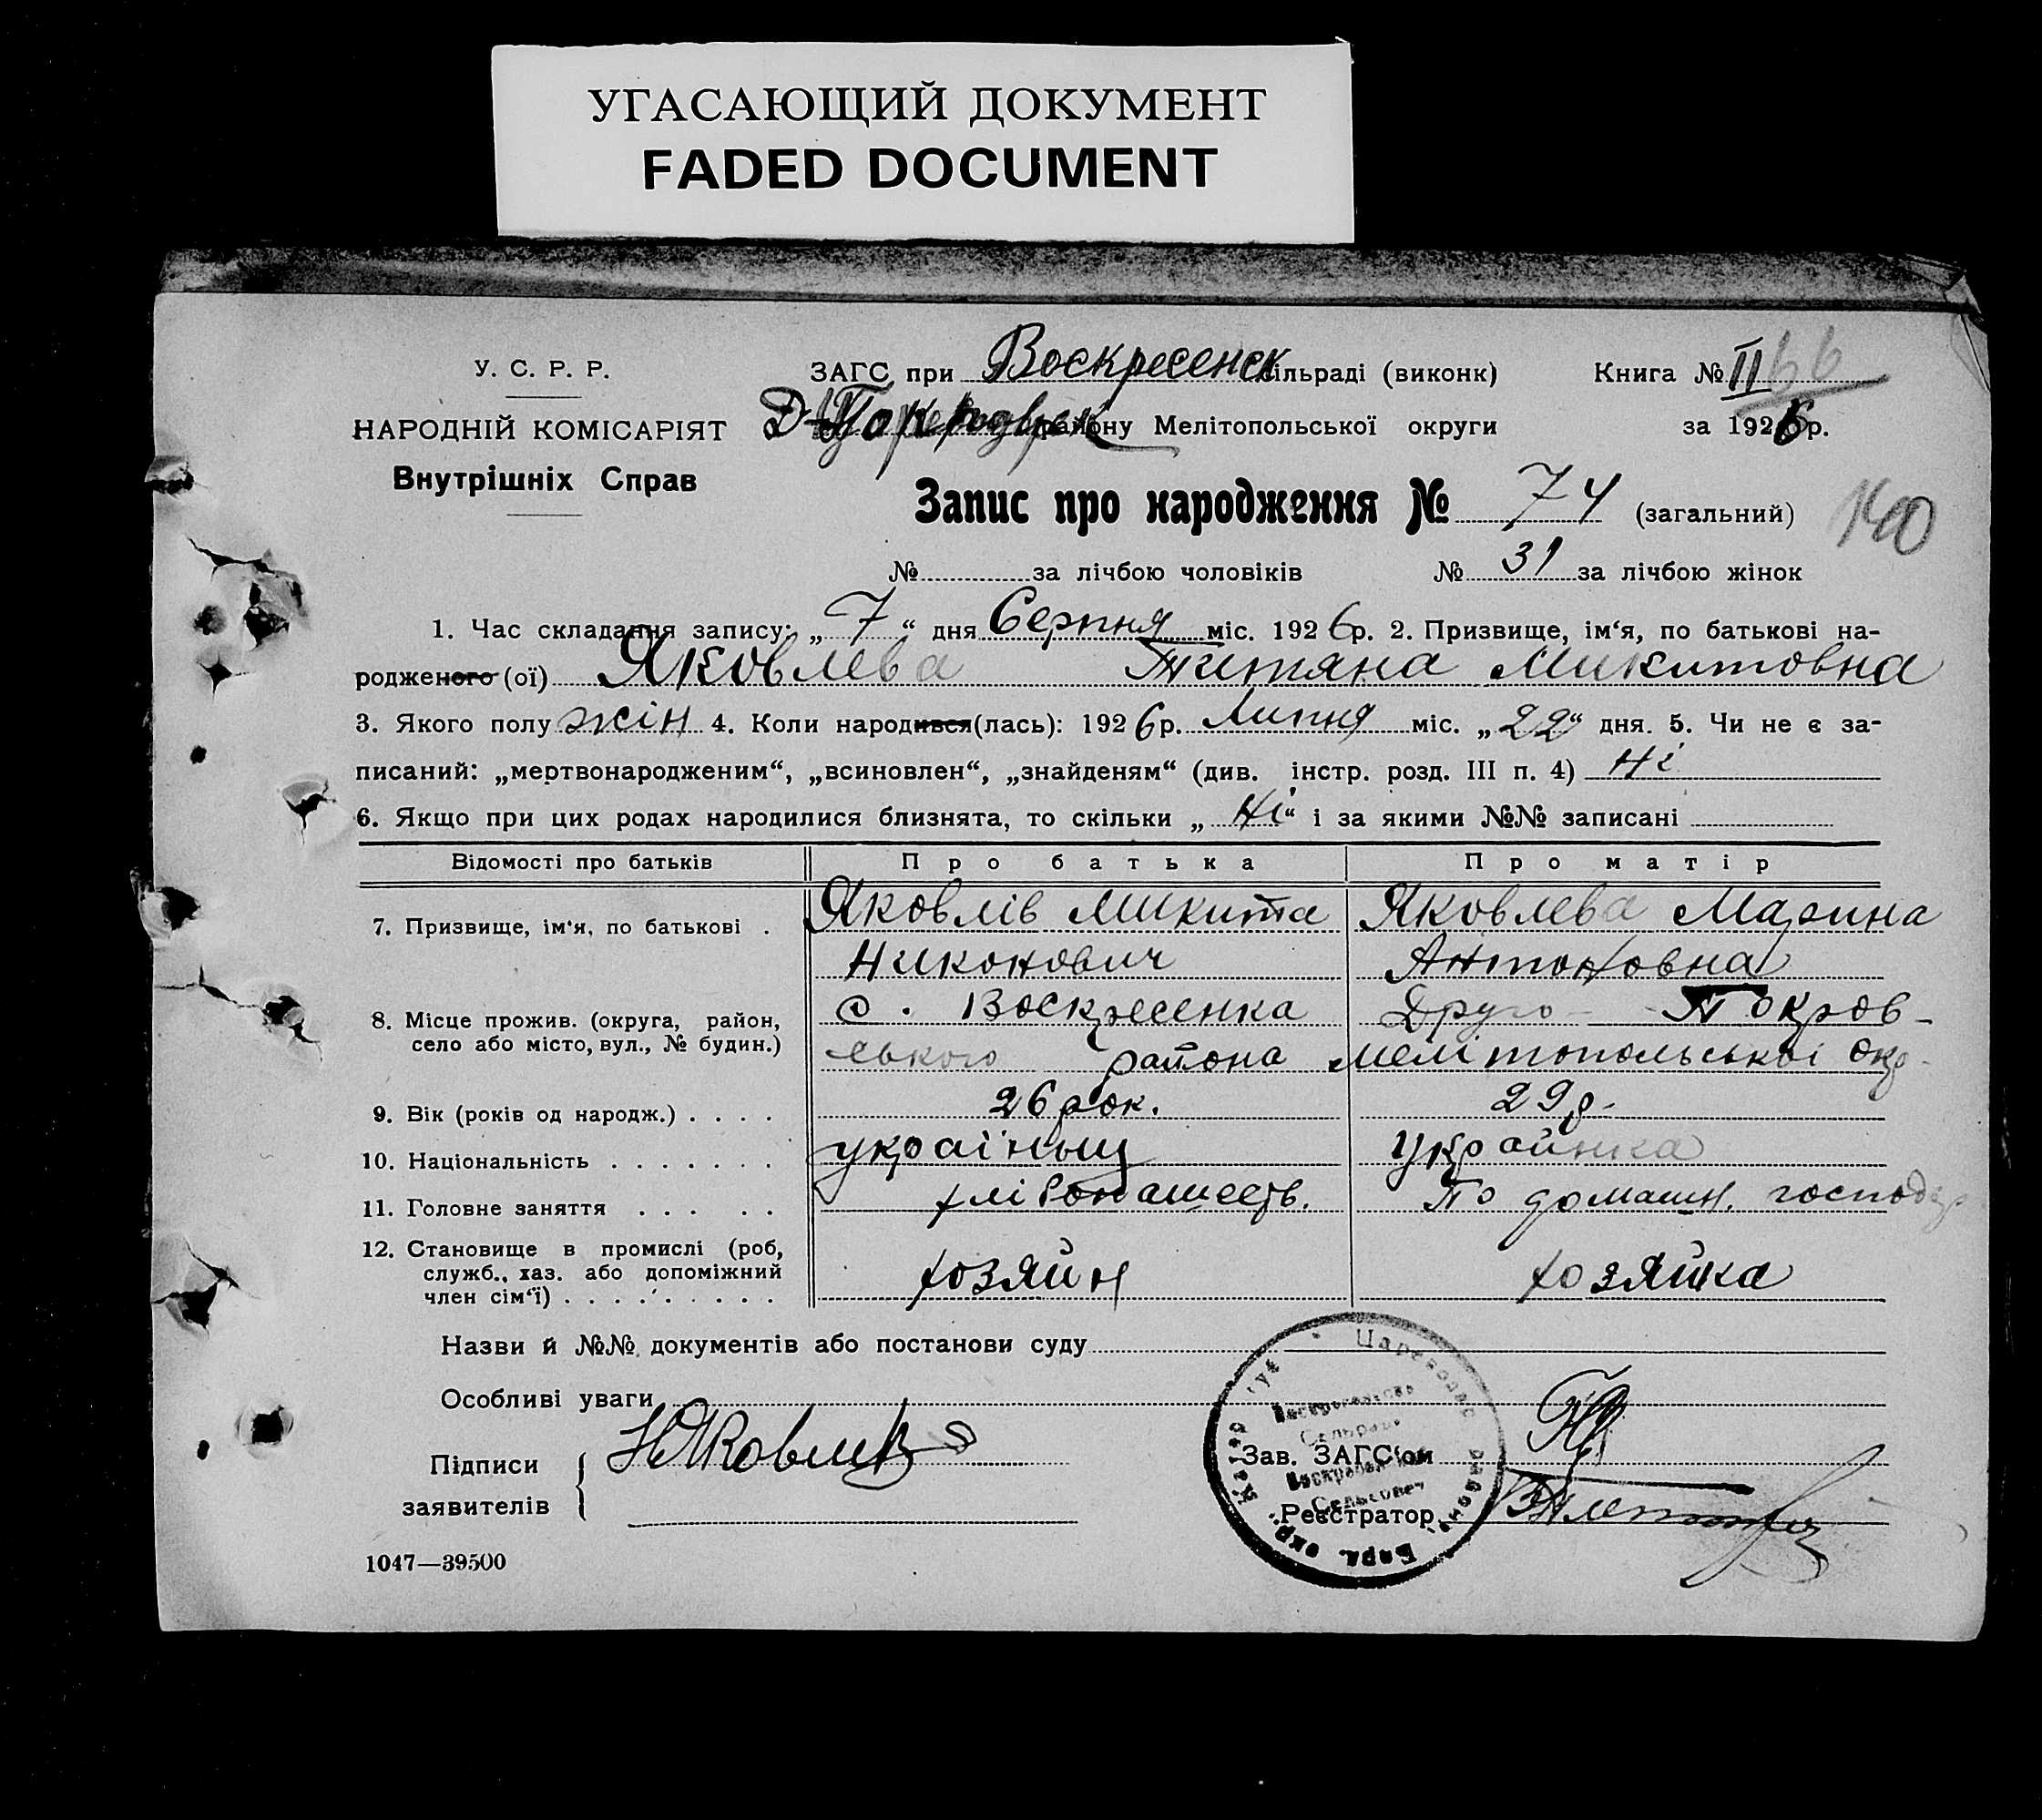 УГАСАЮЩИЙ ДОКУМЕНТ
FADED DOCUMENT
У. С. Р. Р.
НАРОДНІЙ КОМІСАРІЯТ
Внутрішніх Справ
ЗАГС при Воскресенск сільраді (виконк)
Д-Покровск району Мелітопольської округи
Книга № II
за 1926 р.
Запис про народження № 74 (загальний)
140
№ за лічбою чоловіків № 31 за лічбою жінок
1. Час складання запису: „7“ дня Серпня міс. 1926 р. 2. Призвище, ім‘я, по батькові на-
родженого (ої) Яковлева Титяна Микитовна
3. Якого полу жін 4. Коли народився(лась): 1926 р. Липня міс. „22“ дня. 5. Чи не є за-
писаний: „мертвонародженим“, „всиновлен“, „знайденям“ (див. інстр. розд. III п. 4) Ні
6. Якщо при цих родах народилися близнята, то скільки „Ні“ і за якими №№ записані
Відомості про батьків Про батька Про матір
7. Призвище, ім‘я, по батькові . Яковлів Микита Яковлева Марина
Никонович Антоновна
8. Місце прожив. (округа, район, село або місто, вул., № будин.) с. Воскресенка Друго - Покров-
ського района Мелітопольської окр.
9. Вік (років од народж.) . . . . 26 рок. 29 р.
10. Національність . . . . . . . українець Українка
11. Головне заняття . . . . . хліборашеств. По домашн. господ
12. Становище в промислі (роб,
служб., хаз. або допоміжний
член сім‘ї) . . . . . . . . . . хозяйн хозяйка
Назви й №№ документів або постанови суду
Особливі уваги
Підписи
заявителів
НЯковлів
Зав. ЗАГС‘ом
Реєстратор
Царевозс района Берд. окр.
Воскресенська
Сельрада
Воскресенский
Сельсовет
1047—39500